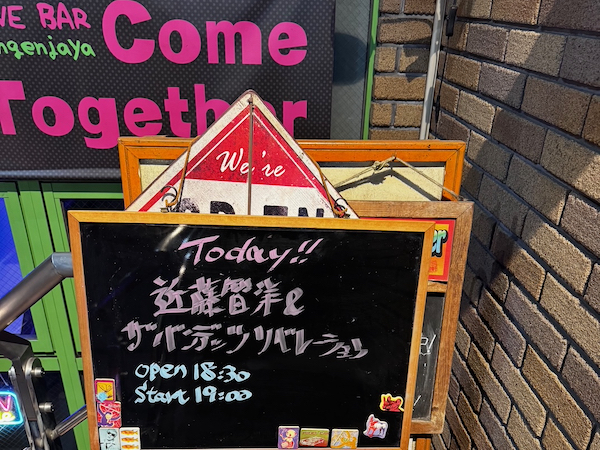 VE BAR
ngenjaya
Come
Together
We're
OPEN
Today!!
近藤智洋&
ザ・バンデッツリベレーション
open 18:30
Start 19:00